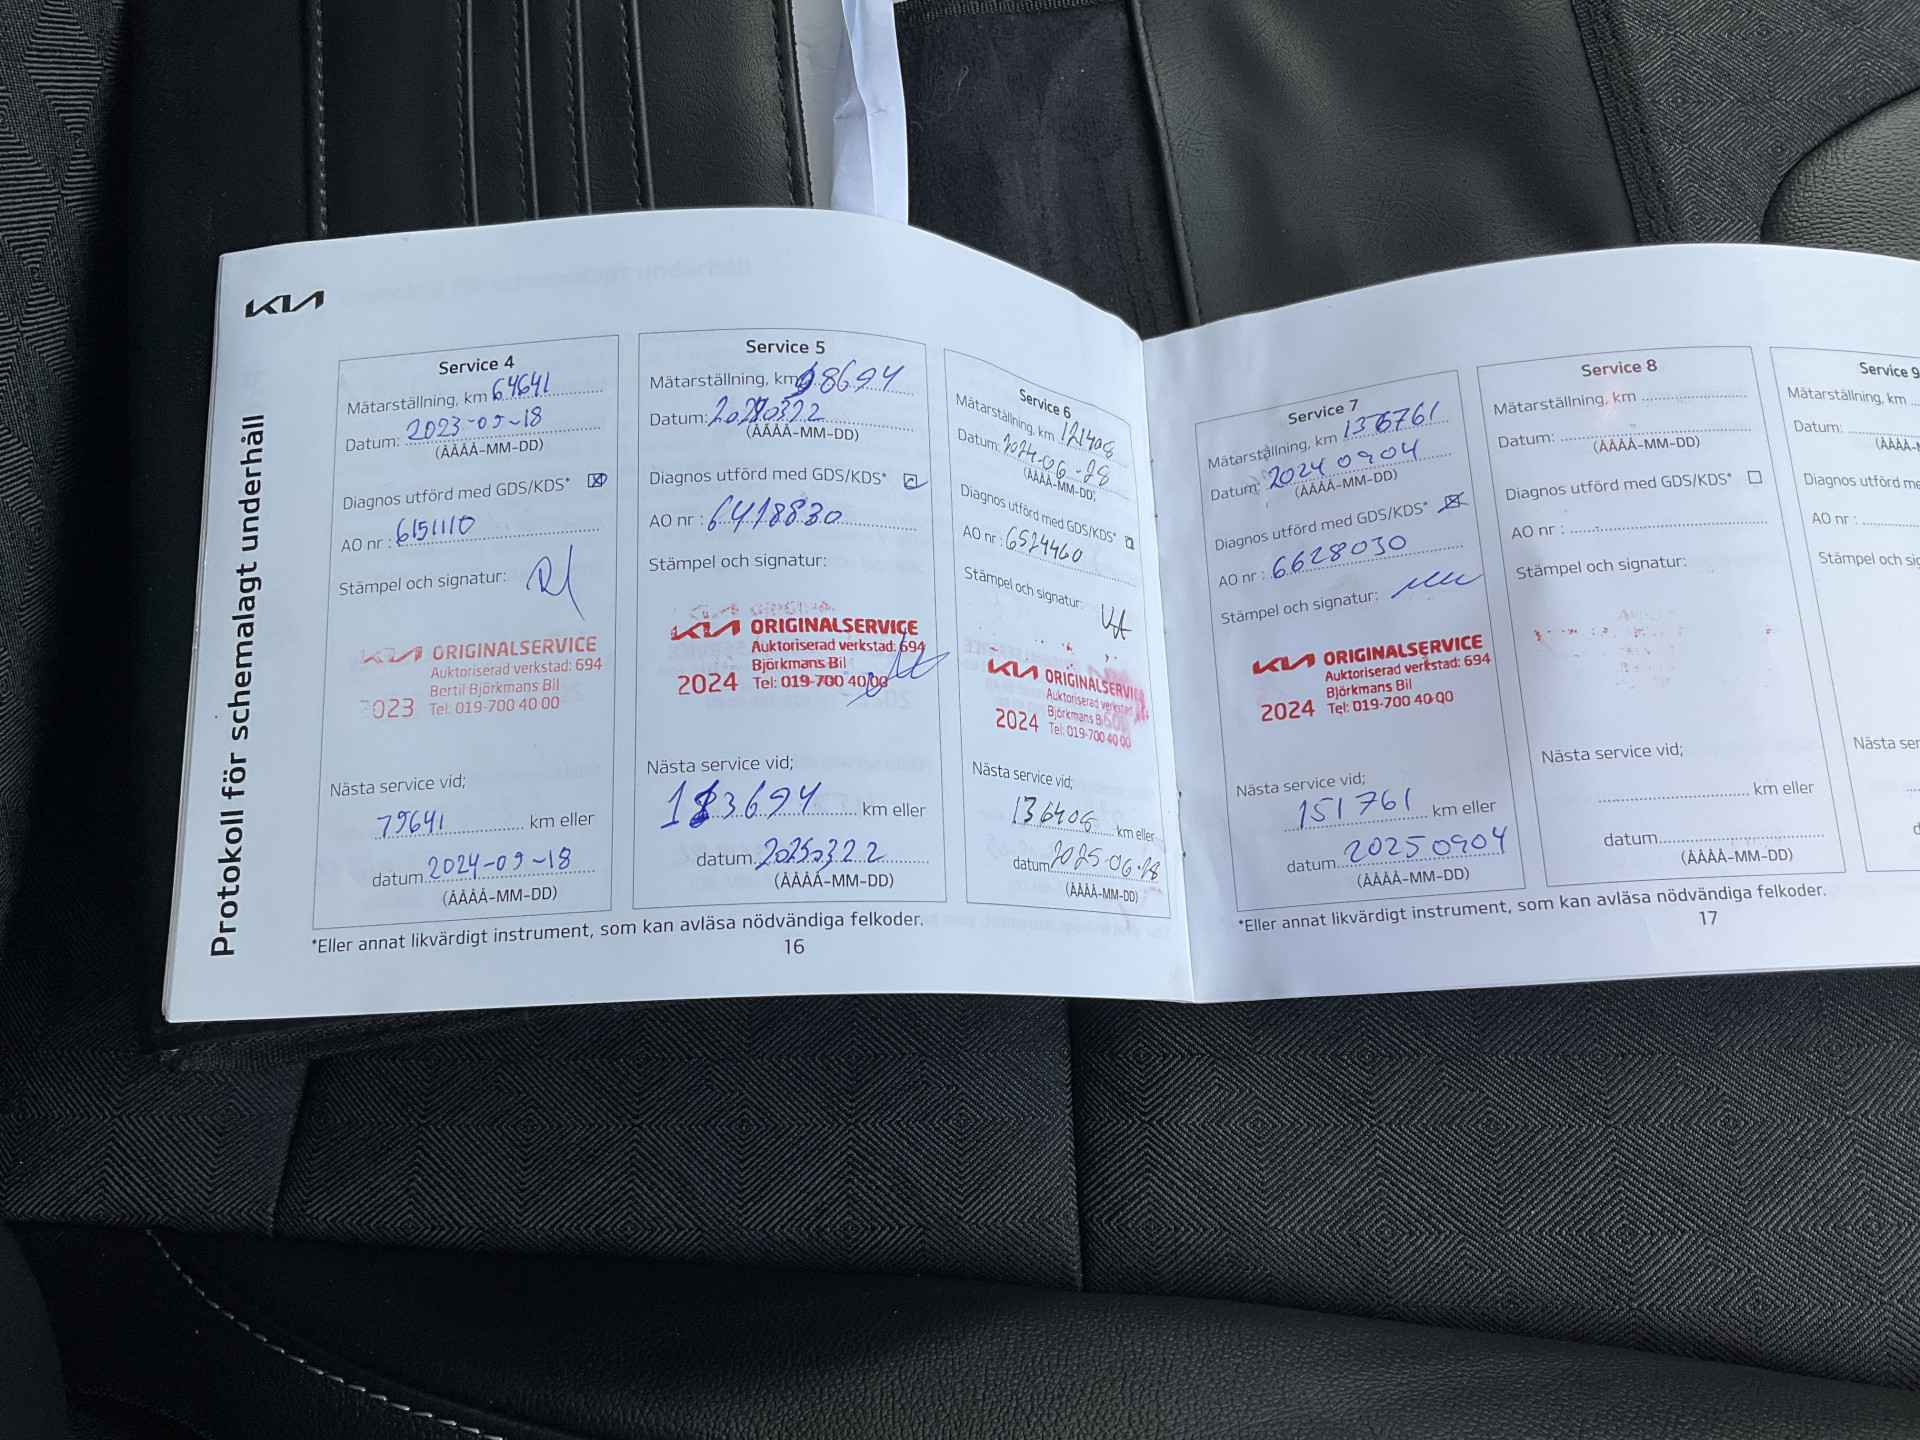 KIA
Protokoll för schemalagt underhåll
Service 4
Mätarställning, km 64641
Datum: 2023-09-18
(ÅÅÅÅ-MM-DD)
Diagnos utförd med GDS/KDS*
AO nr : 6151110
Stämpel och signatur:
KIA ORIGINALSERVICE
Auktoriserad verkstad: 694
Bertil Björkmans Bil
2023 Tel: 019-700 40 00
Nästa service vid;
79641 km eller
datum. 2024-09-18
(ÅÅÅÅ-MM-DD)
Service 5
Mätarställning, km 98694
Datum: 20240322
(ÅÅÅÅ-MM-DD)
Diagnos utförd med GDS/KDS*
AO nr : 6418830
Stämpel och signatur:
KIA ORIGINALSERVICE
Auktoriserad verkstad: 694
Björkmans Bil
2024 Tel: 019-700 40 00
Nästa service vid;
113694 km eller
datum. 20250322
(ÅÅÅÅ-MM-DD)
Service 6
Mätarställning, km 121408
Datum: 2024-06-28
(ÅÅÅÅ-MM-DD)
Diagnos utförd med GDS/KDS*
AO nr : 6524460
Stämpel och signatur:
KIA ORIGINALSERVICE
Auktoriserad verkstad
Björkmans B
2024 Tel: 019-700 40 00
Nästa service vid;
136408 km eller
datum 2025-06-28
(ÅÅÅÅ-MM-DD)
*Eller annat likvärdigt instrument, som kan avläsa nödvändiga felkoder.
16
Service 7
Mätarställning, km 136761
Datum: 20240904
(ÅÅÅÅ-MM-DD)
Diagnos utförd med GDS/KDS*
AO nr : 6628030
Stämpel och signatur:
KIA ORIGINALSERVICE
Auktoriserad verkstad: 694
Björkmans Bil
2024 Tel: 019-700 40 00
Nästa service vid;
151761 km eller
datum. 20250904
(ÅÅÅÅ-MM-DD)
Service 8
Mätarställning, km
Datum:
(ÅÅÅÅ-MM-DD)
Diagnos utförd med GDS/KDS*
AO nr :
Stämpel och signatur:
Nästa service vid;
km eller
datum.
(ÅÅÅÅ-MM-DD)
Service 9
Mätarställning, km
Datum:
(ÅÅÅÅ-M
Diagnos utförd me
AO nr :
Stämpel och sig
Nästa ser
*Eller annat likvärdigt instrument, som kan avläsa nödvändiga felkoder.
17